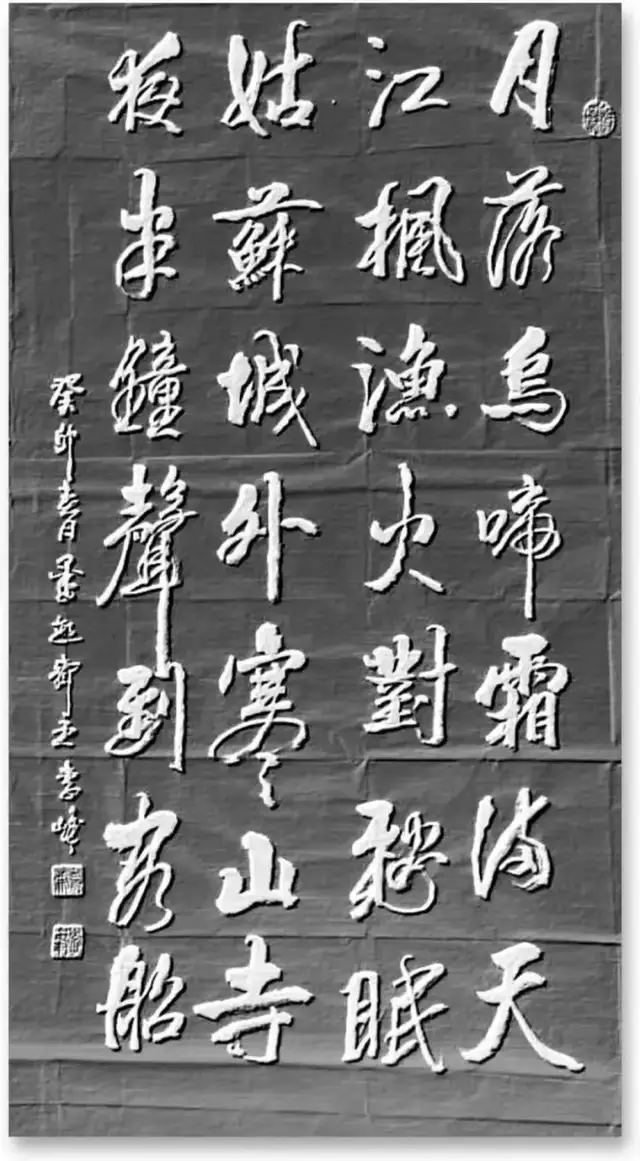 月落烏啼霜滿天
江楓漁火對愁眠
姑蘇城外寒山寺
夜半鐘聲到客船
癸卯春月墨逸軒主李峰